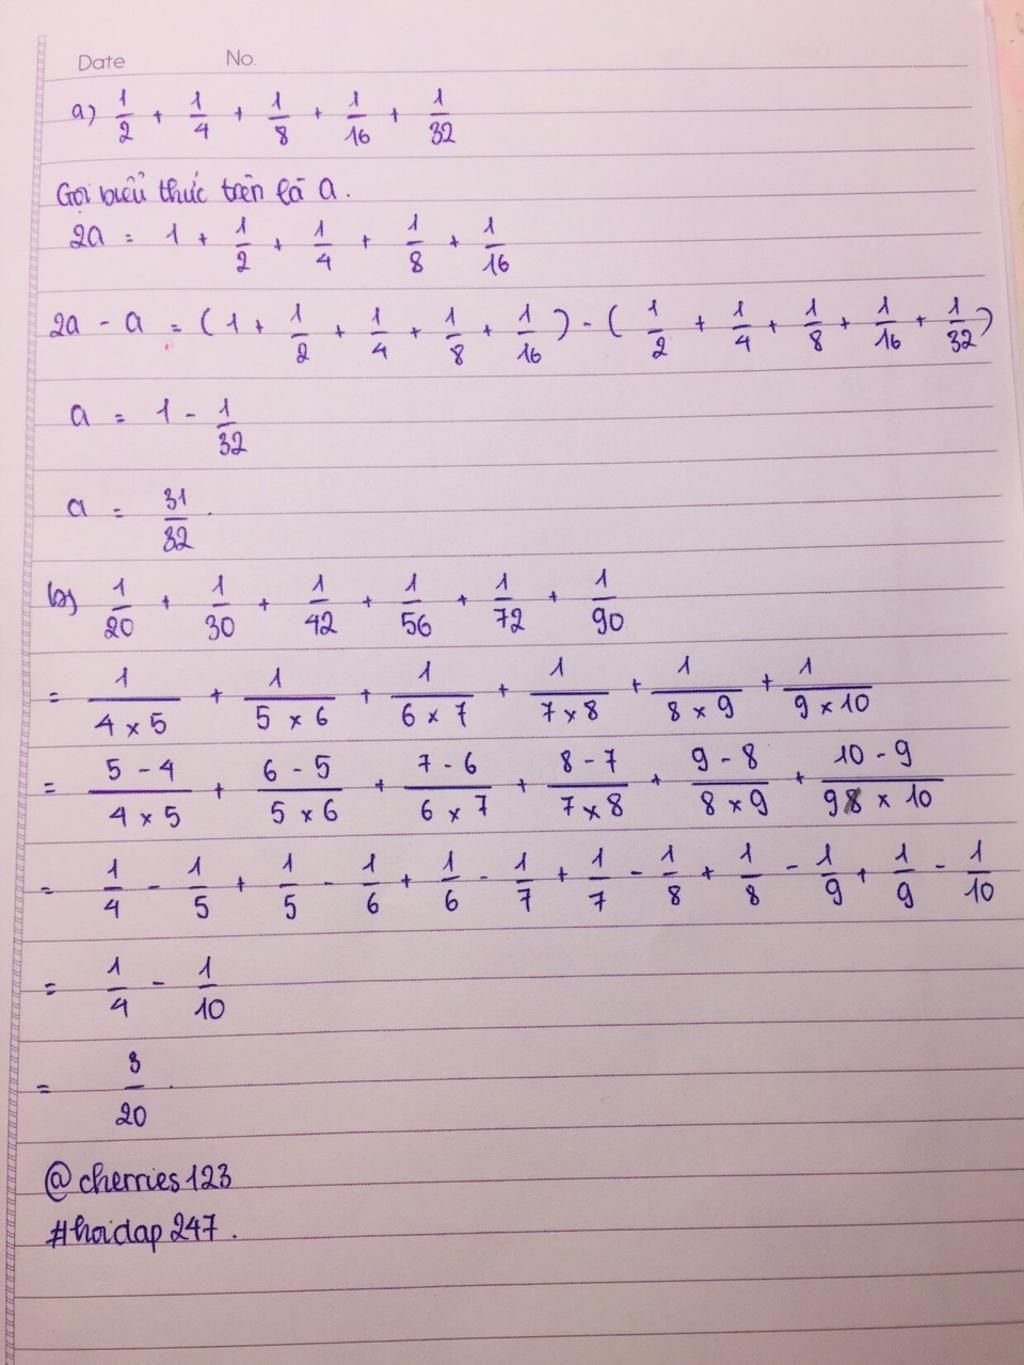 Date No.
a) 1/2 + 1/4 + 1/8 + 1/16 + 1/32
Gọi biểu thức trên là a.
2a = 1 + 1/2 + 1/4 + 1/8 + 1/16
2a - a = (1 + 1/2 + 1/4 + 1/8 + 1/16) - (1/2 + 1/4 + 1/8 + 1/16 + 1/32)
a = 1 - 1/32
a = 31/32.
b) 1/20 + 1/30 + 1/42 + 1/56 + 1/72 + 1/90
= 1/(4 × 5) + 1/(5 × 6) + 1/(6 × 7) + 1/(7 × 8) + 1/(8 × 9) + 1/(9 × 10)
= (5 - 4)/(4 × 5) + (6 - 5)/(5 × 6) + (7 - 6)/(6 × 7) + (8 - 7)/(7 × 8) + (9 - 8)/(8 × 9) + (10 - 9)/(9 × 10)
= 1/4 - 1/5 + 1/5 - 1/6 + 1/6 - 1/7 + 1/7 - 1/8 + 1/8 - 1/9 + 1/9 - 1/10
= 1/4 - 1/10
= 3/20.
@cherries123
#hoidap247.